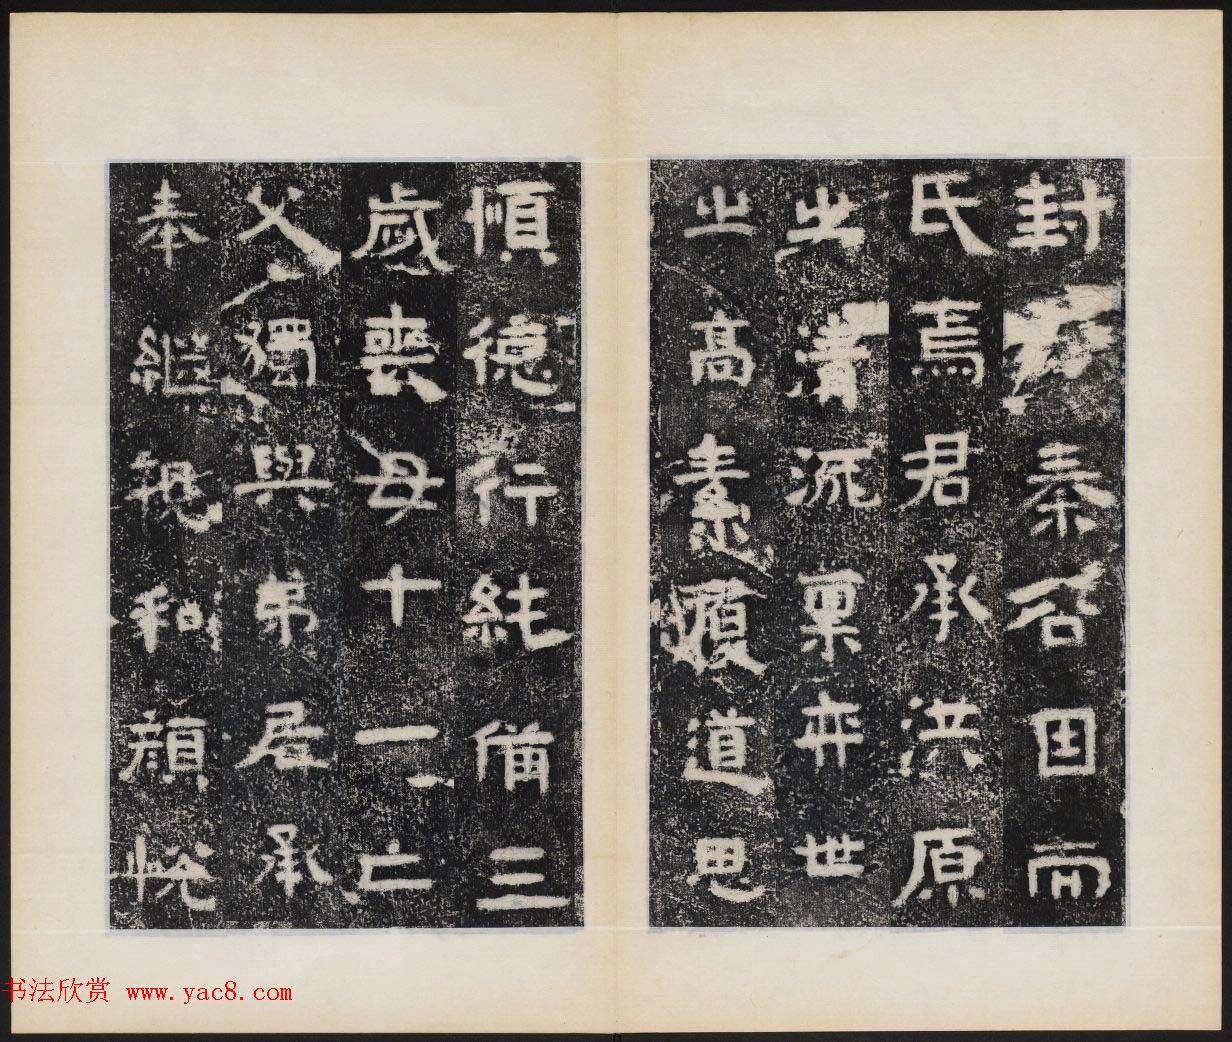 封秦谷因而
氏焉君承洪原
之清流稟弈世
之高素履道思
順德行純備三
歲喪母十一亡
父獨與弟居承
奉繼親和顏悅
书法欣赏 www.yac8.com